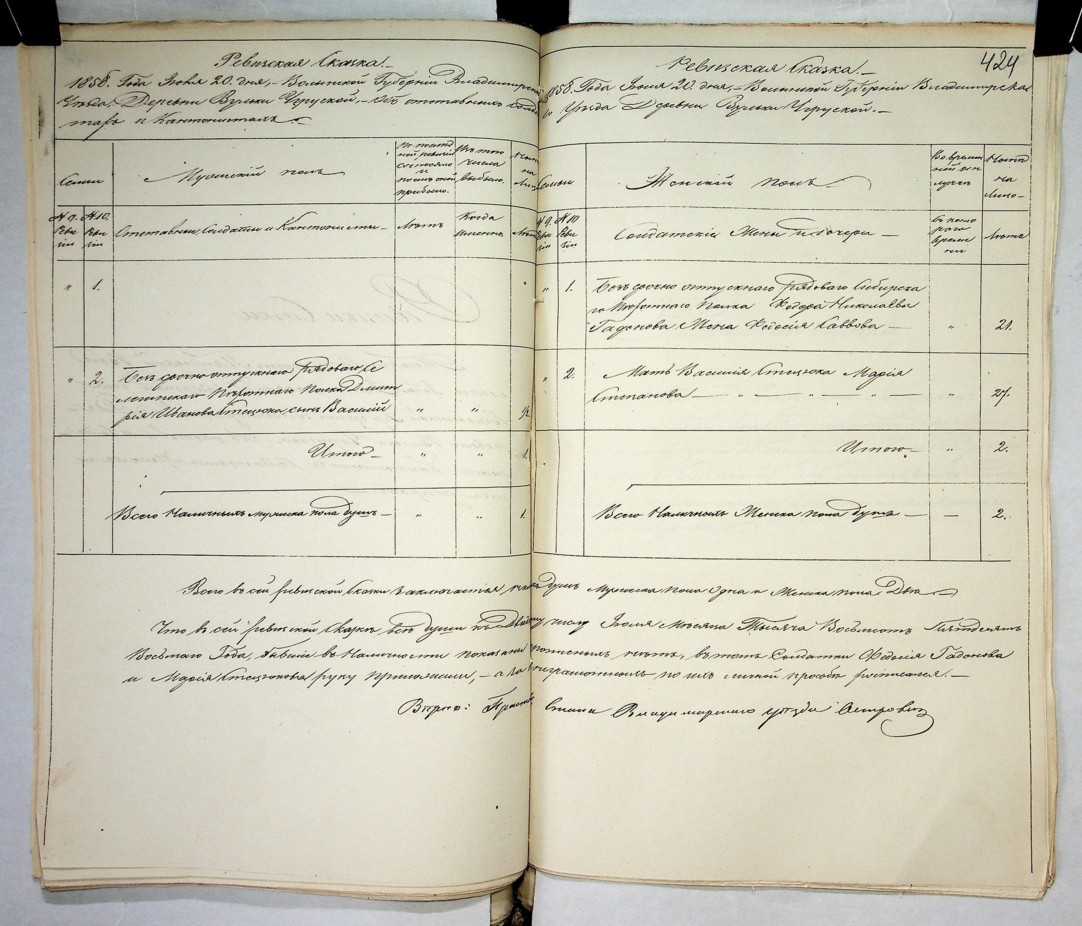 Ревизская Сказка.
1858. Года Июня 20. дня, Волынской Губерніи Владимирскаго
Уѣзда, Деревни Вульки Угруской. Объ отставныхъ Солда
тахъ и Кантонистахъ
Семьи
Мужескій полъ
По послѣд
ней ревизіи
состояло
и
послѣ оной
прибыло.
Изъ того
числа
выбыло.
№ 9. Реви
зіи
№ 10. Реви
зіи
Отставные Солдаты и Кантонисты
Лѣтъ
Когда
именно
Лѣтъ
" 1.
" 2. Безсрочно отпускнаго Рядоваго Се
ленгинскаго Пѣхотнаго Полка Дмит
рія Иванова Стецюка, сынъ Василій " "
Итого " " 1.
Всего Наличныхъ мужеска пола душъ " " 1.
424
Ревизская Сказка.
1858. Года Июня 20. дня, Волынской Губерніи Владимирска
го Уѣзда Деревни Вульки Угруской.
Семьи
Женскій полъ.
Во времен
ной от
лучкѣ
№ 9. Реви
зіи
№ 10. Реви
зіи
Солдатскіе Жены и дочери
Съ кото
раго
време
ни
Лѣтъ
" 1. Безсрочно отпускнаго Рядоваго Сибирска
го Пѣхотнаго полка Федора Николаева
Гадонова Жена Феодосія Саввова " 21.
" 2. Мать Василія Стецюка Марія
Степанова " " " " " 27.
Итого " 2.
Всего Наличныхъ Женска пола душъ 2.
Всего въ сей ревизской Сказкѣ заключается душъ Мужеска пола Одна и Женска пола Двѣ
Что въ сей ревизской Сказкѣ всѣ души къ числу Июля Мѣсяца Тысяча Восьмсотъ Пятдесятъ
Восьмаго Года, бывшіе въ Наличности показаны нѣтъ, въ томъ Солдатки Феодосія Гадонова
и Марія Стецюкова руку приложили, а за неграмотныхъ по ихъ личной прозьбѣ росписался.
Вѣрно: Стана Владимирскаго уѣзда